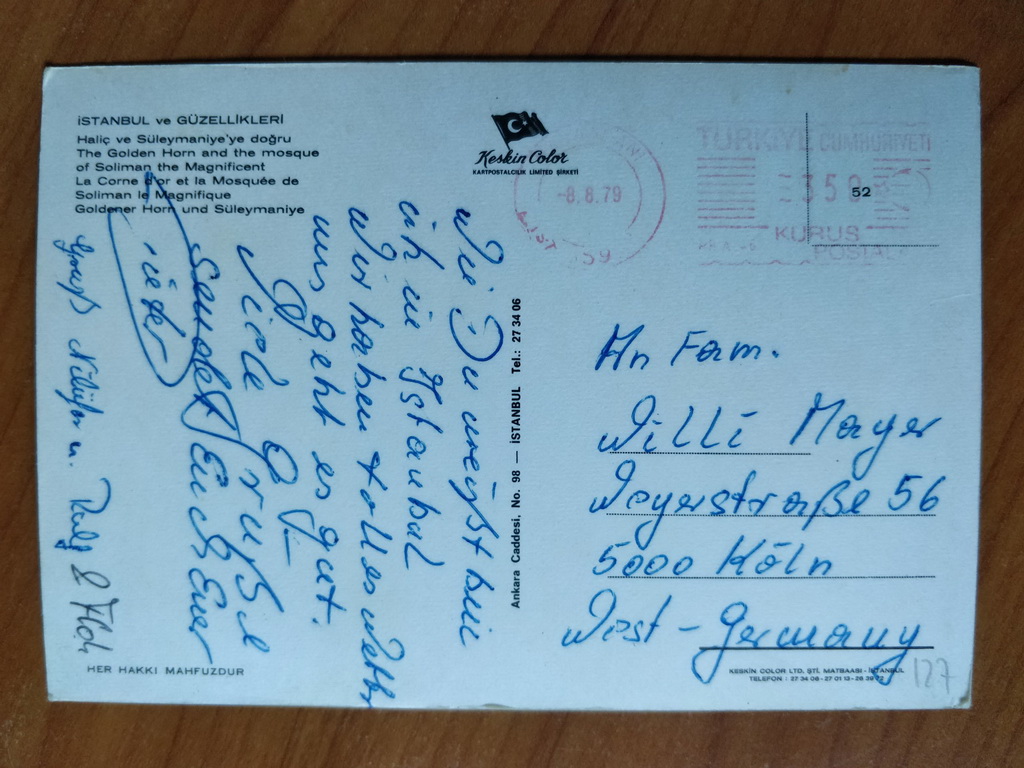 İSTANBUL ve GÜZELLİKLERİ
Haliç ve Süleymaniye'ye doğru
The Golden Horn and the mosque
of Soliman the Magnificent
La Corne d'or et la Mosquée de
Soliman le Magnifique
Goldener Horn und Süleymaniye
Keskin Color
KARTPOSTALCILIK LIMITED ŞİRKETİ
-8.8.79
TÜRKİYE CUMHURİYETİ
350
KURUŞ
POSTALARI
52
Wie Du weißt bin
ich in Istanbul
Wir haben tolles Wetter
uns geht es gut.
Viele Grüße
sendet Euch Euer
Gruß Nilüfer u.
Ankara Caddesi, No. 98 — İSTANBUL Tel.: 27 34 06
An Fam.
Willi Mayer
Weyerstraße 56
5000 Köln
West-Germany
HER HAKKI MAHFUZDUR
KESKİN COLOR LTD. ŞTİ. MATBAASI - İSTANBUL
TELEFON : 27 34 06 - 27 01 13 - 28 39 72
127